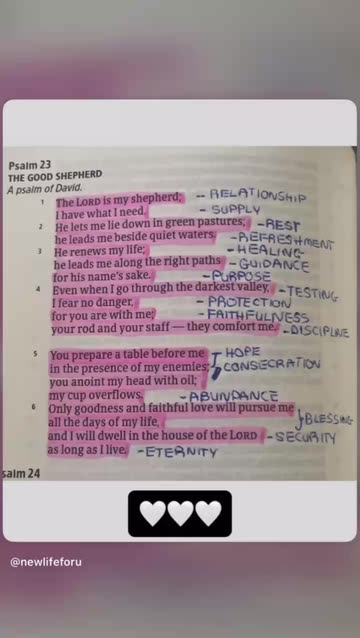 Psalm 23
THE GOOD SHEPHERD
A psalm of David.
1 The LORD is my shepherd; -- RELATIONSHIP
I have what I need. - SUPPLY
2 He lets me lie down in green pastures; - REST
he leads me beside quiet waters. - REFRESHMENT
3 He renews my life; - HEALING
he leads me along the right paths - GUIDANCE
for his name's sake. - PURPOSE
4 Even when I go through the darkest valley, - TESTING
I fear no danger, - PROTECTION
for you are with me; - FAITHFULNESS
your rod and your staff — they comfort me. - DISCIPLINE
5 You prepare a table before me HOPE
in the presence of my enemies; CONSECRATION
you anoint my head with oil;
my cup overflows. - ABUNDANCE
6 Only goodness and faithful love will pursue me
all the days of my life, BLESSING
and I will dwell in the house of the LORD - SECURITY
as long as I live. - ETERNITY
salm 24
🤍🤍🤍
@newlifeforu